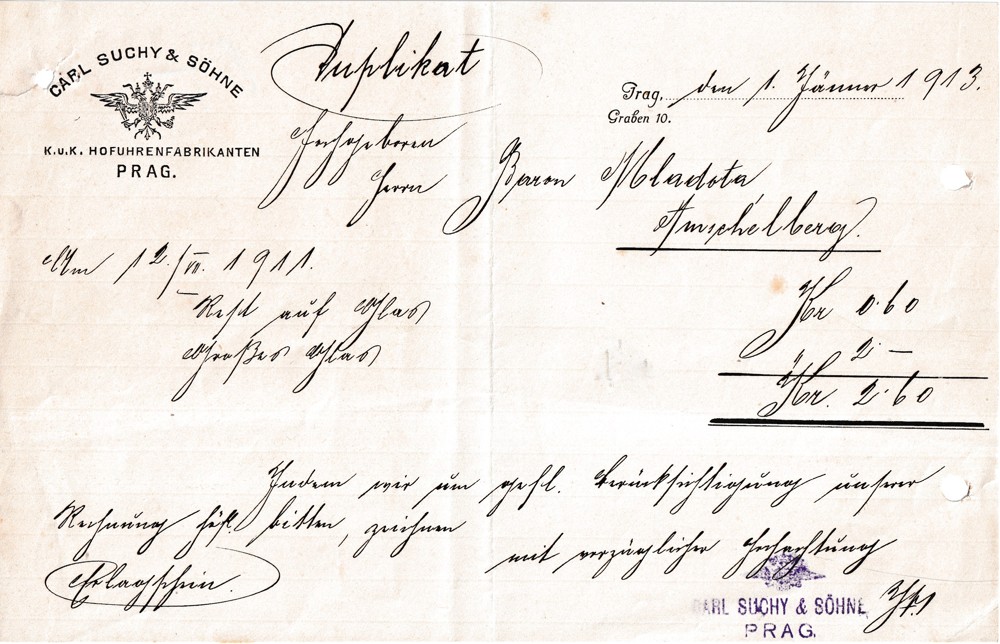 CARL SUCHY & SÖHNE
K.u.K. HOFUHRENFABRIKANTEN
PRAG.
Duplikat
Prag, den 1. Jänner 1913.
Graben 10.
Hochgeboren
Herrn Baron Mladota
Amschelberg.
Am 12./VII. 1911.
Rest auf Glas Kr 0.60
Großes Glas 2.–
Kr. 2.60
Indem wir um gefl. Berücksichtigung unserer
Rechnung höfl. bitten, zeichnen
mit vorzüglicher Hochachtung
Erlagschein.
CARL SUCHY & SÖHNE
PRAG.